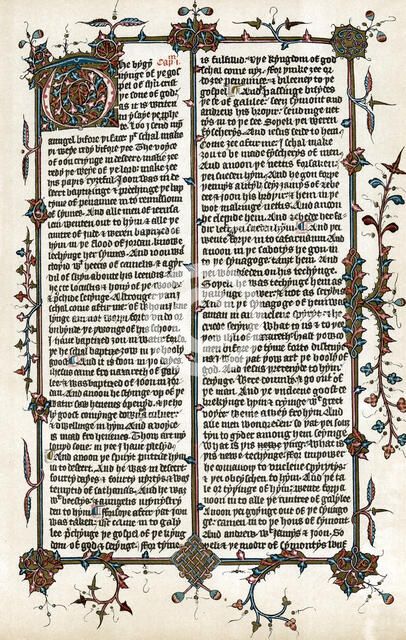 The bygȳ
Cap̄ i.
nynge of þe gos
pel of ihū crist
þe sone of god:
as it is writen
in ysaye þe pphe
te. loo y send my
aungel bifore þi face: þt schal make
þi weye redy bifore þee. The voyce
of oon cryinge in desert: make zee
redy þe weye of þe lord: make zee
his paþis ryztful. Joon was in de
sert baptisinge & prechinge þe bap
tym of penaunce in to remissioun
of synnes. And alle men of ierusa
lem wenten out to hym & alle þe
cuntre of jude: & weren baptised of
hym in þe flood of jordan. knowe
lechinge her synnes. And joon was
cloþid wt heeris of camelis & a gyr
dil of skyn aboute his leendis: And
he eet locustis & hony of þe woode:
& prechide seyinge. A strenger þan y
schal come aftir me: of whom y am
not worþi
þe þwonge of his schoon.
I haue baptised zou in water: forso
þe he schal baptise zou in þe hooly
goost. And it is don in þo dayes
ihesus came fro nazareth of galy
lee: & was baptised of Joon in Jor
dan. And anoon he styinge up of þe
water: say heuenes openyd. & þe ho
ly goost comynge doun as culuer:
& dwellinge in hym. And a voyce
is maad fro heuenes. Thou art my
louyd sone: in þee I haue plesyd.
And anoon þe spirit puttide hym
in to desert. And he was in desert
fourty dayes & fourty nyztis: & was
temptid of sathanas. And he was
wt beestys: & aungelis mynystry
den to hym. Forsoþe aftir þat joon
was taken: ihc came in to galy
lee: prechynge þe gospel of þe kyng
dom of god & seyinge. For tyme
is fulfilld. & þe kyngdom of god
schal come nyz: for þinke zee or
do zee penaunce. & bileeuep to þe
gospel. And he passinge bisydes
þe se of galilee. seez symount and
andreu his broþer: sendynge net
tys in to þe see. soþely þei weren
fyscherys. And jesus seide to hem.
Come zee aftir me: I schal make
zou to be maad fyscherys of men.
And anoon þe nettis forsaken:
þei sueden hym. And he gon forþe
þennys a litil seez jamys of zebe
dee & joon his broþir: & hem in þe
boot makinge nettis. And anoon
he clepide hem. And zebedee her fa
dir left: þei sueden hym. And þei
wente forþe in to cafarnaum. And
anoon in þe sabotys he gon in
to þe synagoge: tauzte hem. And
þei wondreden on his techynge.
Soþely he was techynge hem as
hauynge power: & not as scribis.
And in þe synagoge of hem was a
man in an unclene spiryt: & he
criede seyinge. What to us & to þee
þou ihū of nazareth: hast þou co
men bifore þe tyme forto distruye
us: I woot þat þou art þe hooly of
god. And jesus þretenyde to hym:
seyinge. Were doumb: & go out of
þe man. And þe unclene goost de
breikynge hym & cryinge wt greet
voyce: wente awey fro hym. And
alle men wondreden: so þat þei souz
ten to gyder among hem seyinge.
What is þis newe þing. What is
þis newe techynge: for in power
he comaundiþ to unclene spyrytys:
& þei obeyschen to hym. And þe ta
le or tyþinge of hym: wente forþe
anoon in to alle þe cuntree of galylee
Anoon þei goynge out of þe syna
goge: camen in to þe hous of symont
And andrew. wt Jamys & joon. So
þely & þe modir of symontys wijf